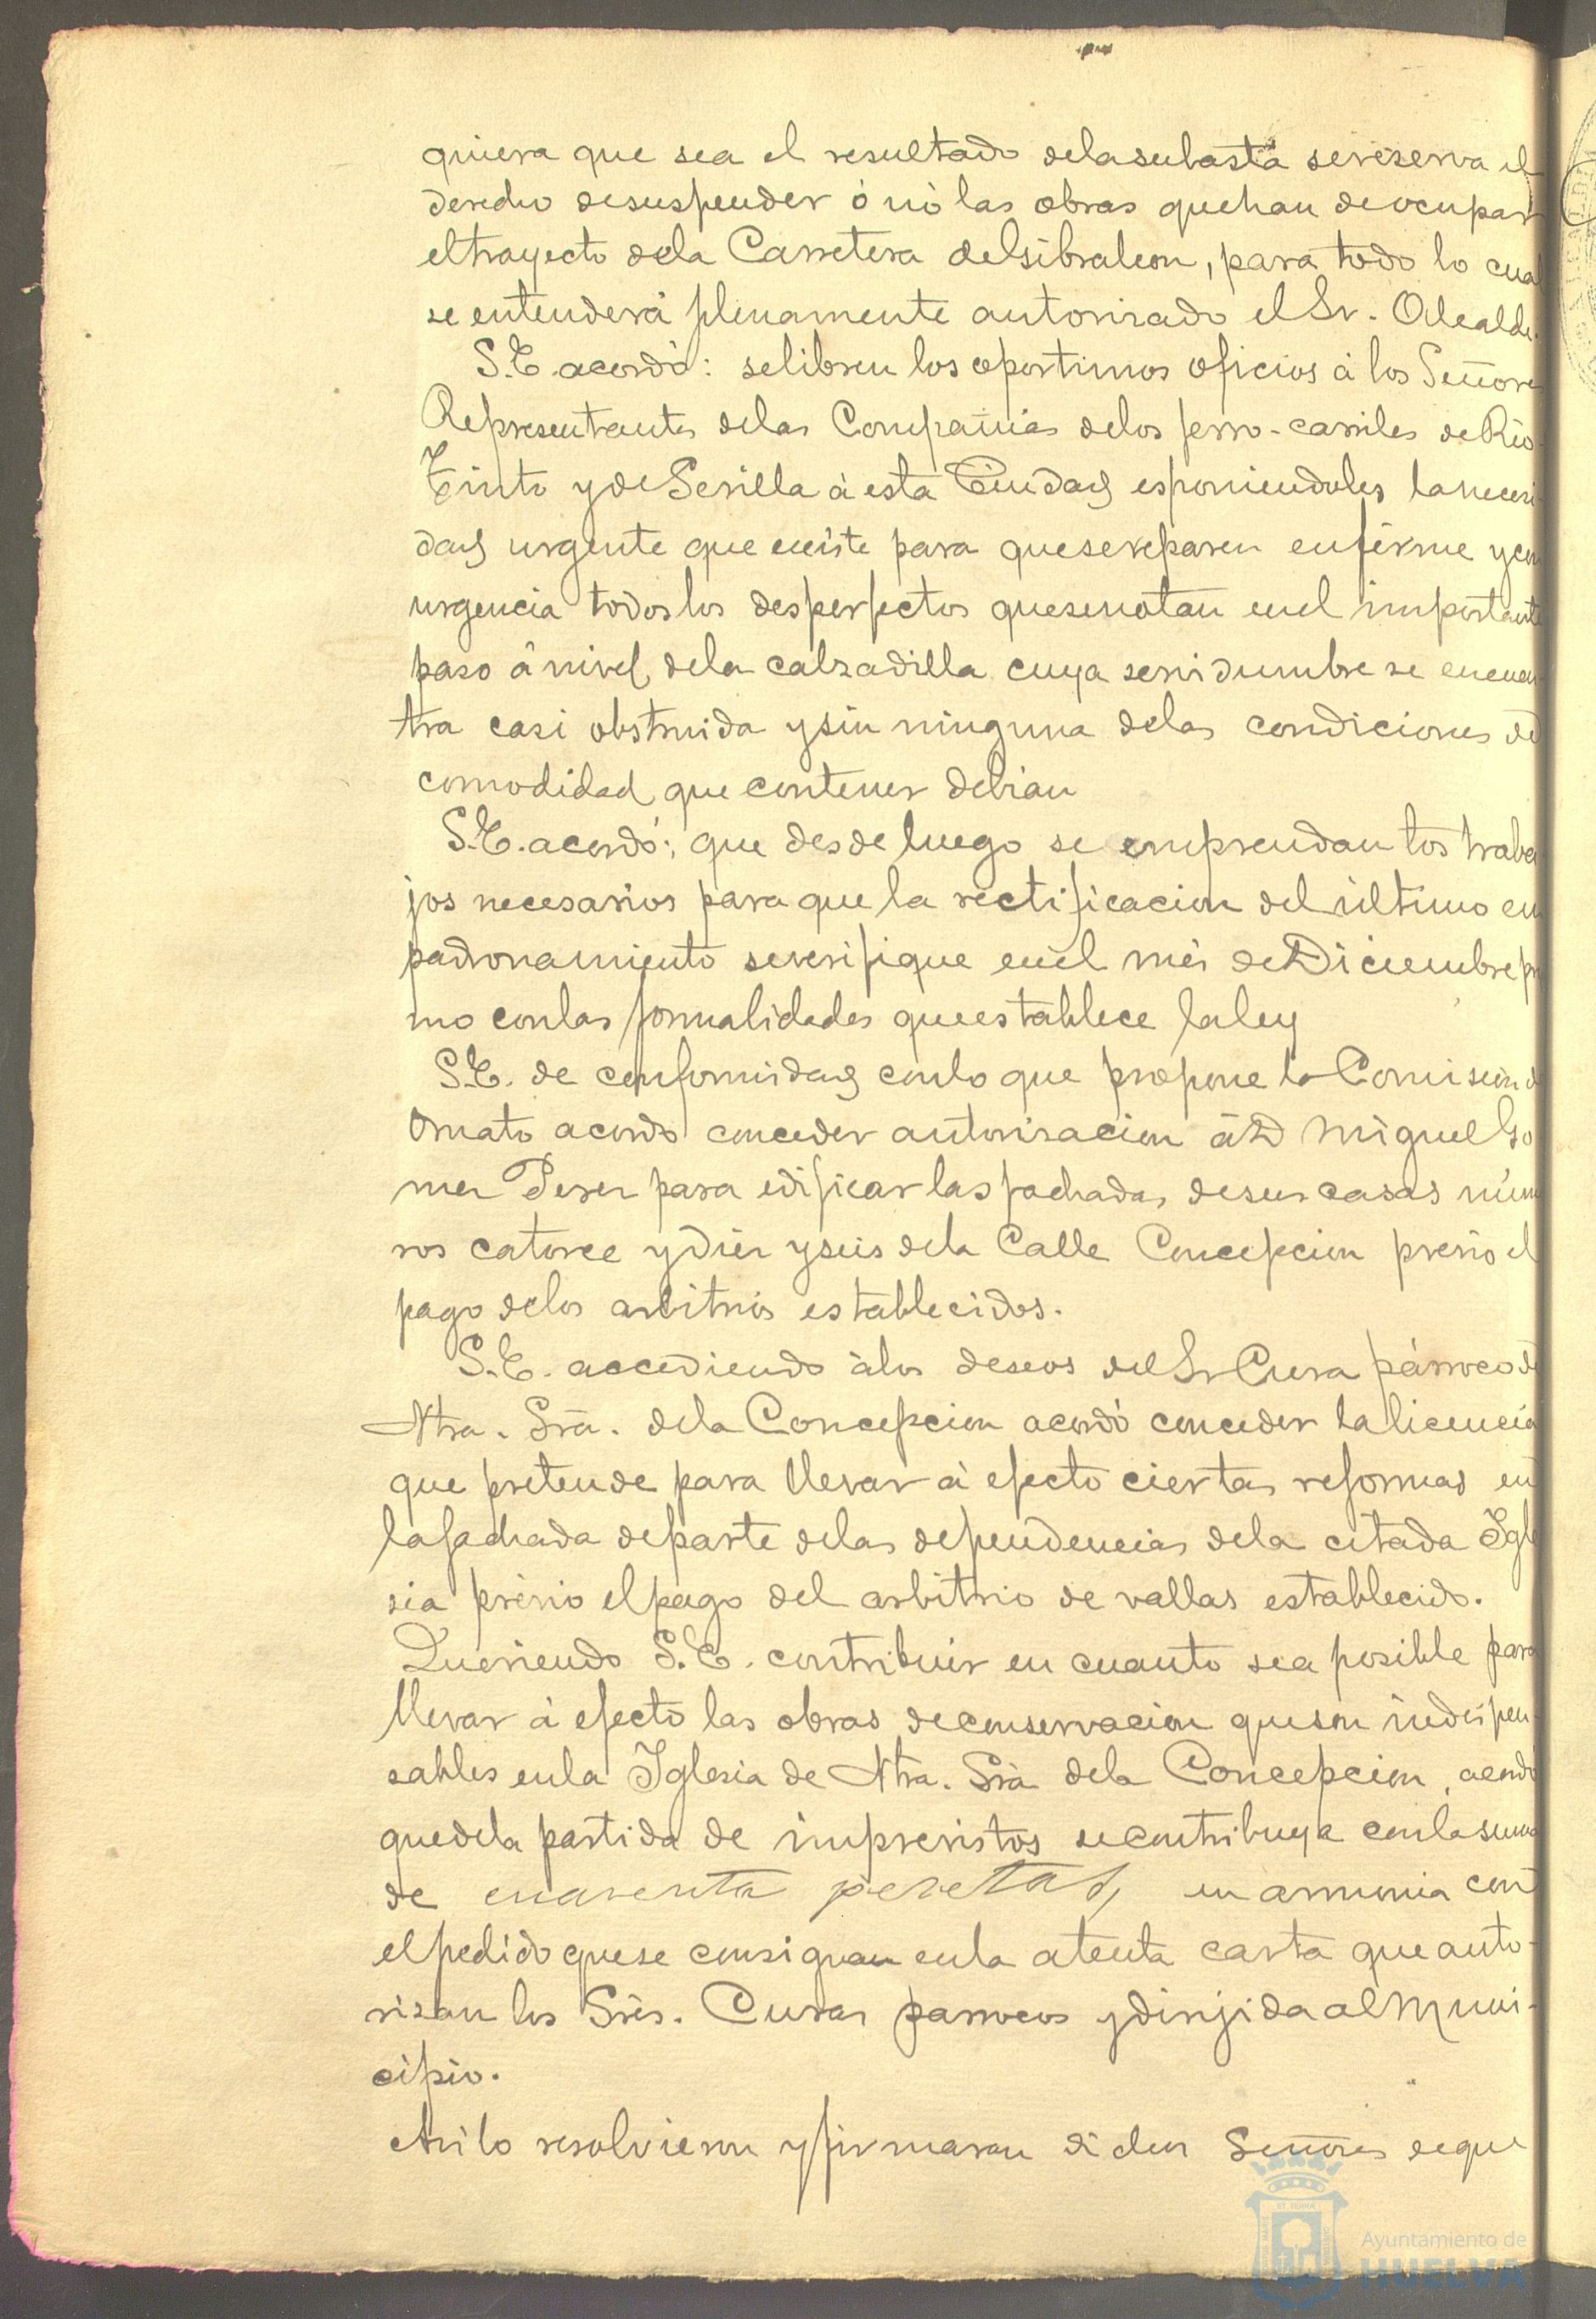 quiera que sea el resultado de la subasta se reserva el
derecho de suspender ó nó las obras que han de ocupar
el trayecto de la Carretera de Gibraleon, para todo lo cual
se entenderá plenamente autorizado el Sr. Alcalde.
S.E. acordó: se libren los oportunos oficios á los Señores
Representantes de las Compañias de los ferro-carriles de Rio-
Tinto y de Sevilla á esta Ciudad esponiendoles la necesi
dad urgente que existe para que se reparen en firme y con
urgencia todos los desperfectos que se notan en el importante
paso á nivel de la calzadilla cuya servidumbre se encuen
tra casi obstruida y sin ninguna de las condiciones de
comodidad que contener debian
S.E. acordó: que desde luego se emprendan los traba
jos necesarios para que la rectificacion del último em
padronamiento se verifique en el més de Diciembre pr
mo con las formalidades que establece la ley
S.E. de conformidad con lo que propone la Comision de
Ornato acordó conceder autorizacion á D Miguel Go
mez Perez para edificar las fachadas de sus casas núme
ros catorce y diez y seis de la Calle Concepcion previo el
pago de los arbitrios establecidos.
S.E. accediendo á los deseos del Sr Cura párroco de
Ntra. Sra. de la Concepcion acordó conceder la licencia
que pretende para llevar á efecto ciertas reformas en
la fachada de parte de las dependencias de la citada Igle
sia prévio el pago del arbitrio de vallas establecido.
Queriendo S.E. contribuir en cuanto sea posible para
llevar á efecto las obras de conservacion que son indispen
sables en la Iglesia de Ntra. Sra de la Concepcion, acordó
que de la partida de imprevistos se contribuya con la suma
de cuarenta pesetas, en armonia con
el pedido que se consignan en la atenta carta que auto-
rizan los Sres. Curas parrocos y dirijida al Muni-
cipio.
Asi lo resolvieron y firmaran dichos Señores de que
Ayuntamiento de
HUELVA